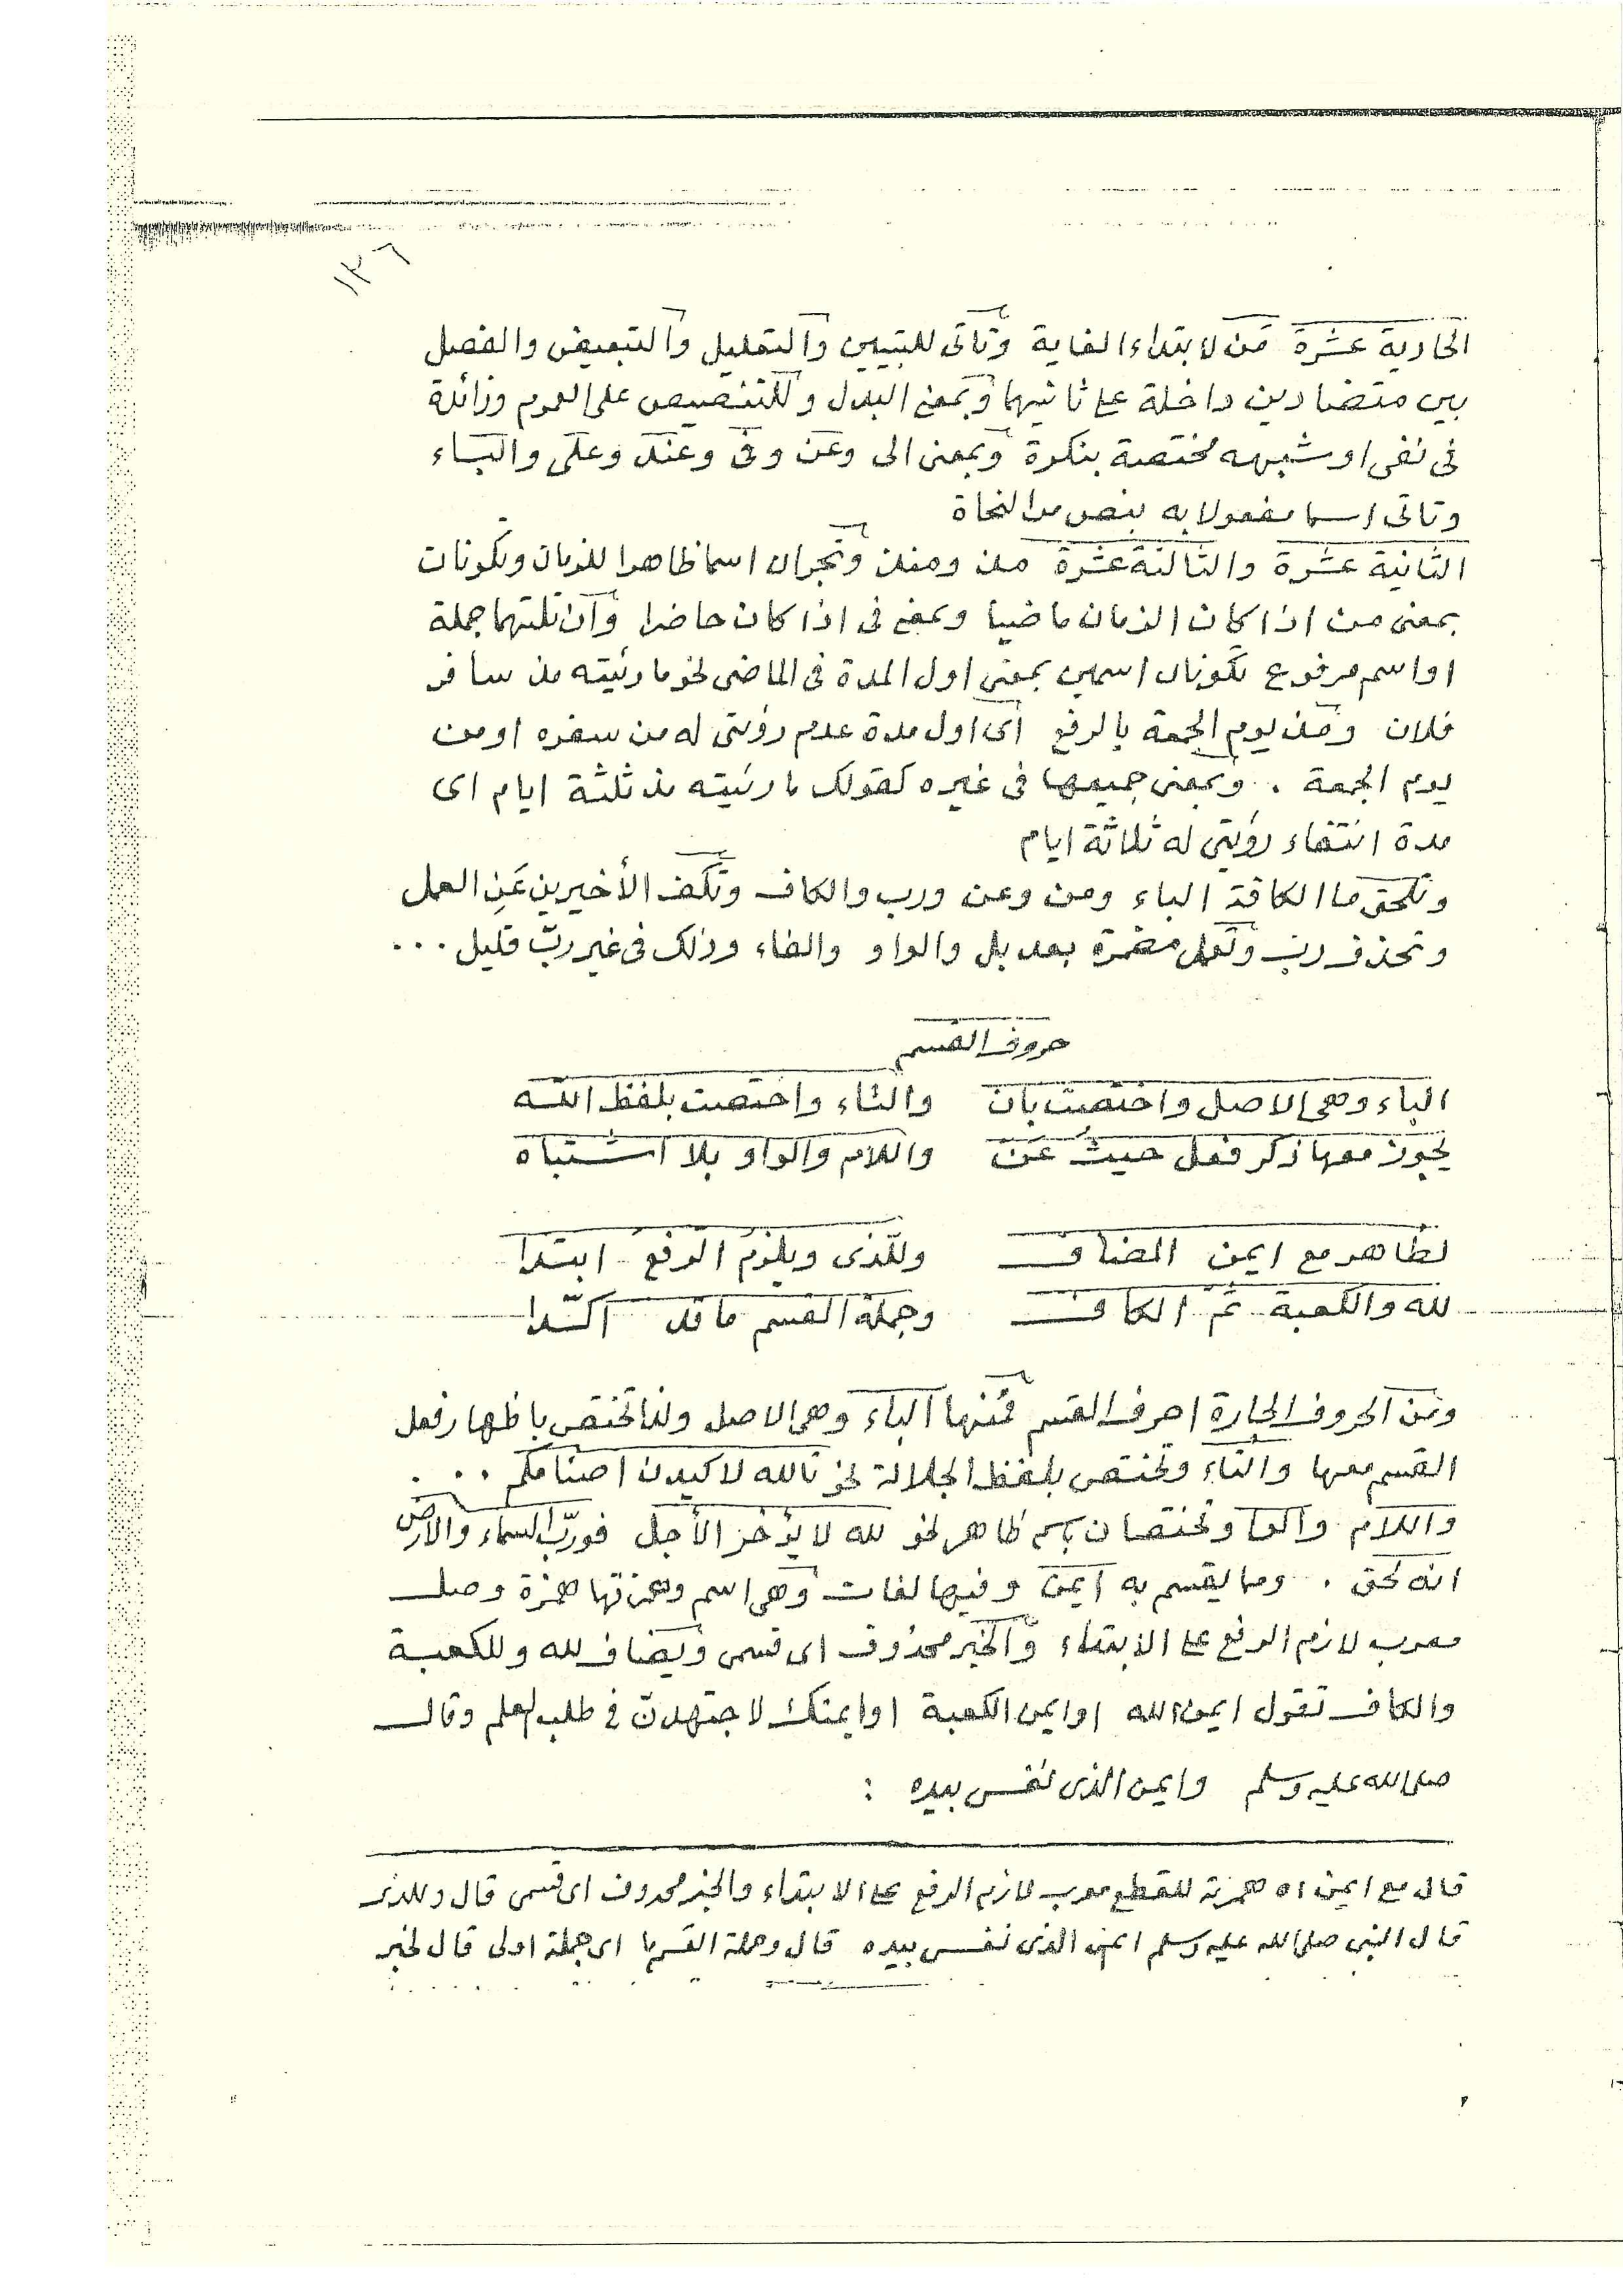 ١٣٦
الحادية عشرة من لابتداء الغاية وتأتى للتبيين والتعليل والتبعيض والفصل
بين متضادين داخلة على ثانيهما وبمعنى البدل وللتنصيص على العموم وزائدة
فى نفى او شبهه مختصة بنكرة وبمعنى الى وعن وفى وعند وعلى والباء
وتاتى اسما مفعولا به بنص من النحاة
الثانية عشرة والثالثة عشرة مذ ومنذ وتجران اسما ظاهرا للزمان وتكونان
بمعنى من اذا كان الزمان ماضيا وبمعنى فى اذا كان حاضرا وان تلتهما جملة
او اسم مرفوع تكونان اسمين بمعنى اول المدة فى الماضى نحو ما رئيته مذ سافر
فلان ومذ يوم الجمعة بالرفع اى اول مدة عدم رؤيتى له من سفره او من
يوم الجمعة . وبمعنى جميعها فى غيره كقولك ما رئيته مذ ثلثة ايام اى
مدة انتفاء رؤيتى له ثلاثة ايام
وتلحق ما الكافة الباء ومن وعن ورب والكاف وتكف الأخيرين عَنِ العمل
وتحذف رب وتعمل مضمرة بعد بل والواو والفاء وذلك فى غير ربّ قليل ...
حروف القسم
الباء وهى الاصل واختصت بان والتاء واختصت بلفظ الله
يجوز معها ذكر فعل حيثُ عَنّ واللام والواو بلا اشتباه
لظاهر مع ايمن المضاف وللّذى ويلزمُ الرفعُ ابتدا
لله والكعبة ثمّ الكاف وجملة القسم ما قد اكّدا
ومن الحروف الجارة احرف القسم فمنها الباء وهى الاصل ولذا تختص باظهار فعل
القسم معها والتاء وتختص بلفظ الجلالة نحو تالله لاكيدن اصنامكم ...
واللام والواو تختصان باسم ظاهر نحو لله لا يؤخر الأجل فوربّ السماء والارض
انه لحق . ومما يقسم به ايمن وفيها لغات وهى اسم وهمزتها همزة وصل
معرب لازم الرفع على الابتداء والخبر محذوف اى قسمى ويضاف لله وللكعبة
والكاف تقول ايمن الله او ايمن الكعبة او ايمنك لاجتهدنّ فى طلب العلم وقال
صلى الله عليه وسلم وايمن الذى نفسى بيده :
قال مع ايمن اه همزته للقطع معرب لازم الرفع على الابتداء والخبر محذوف اى قسمى قال وللذى
قال النبى صلى الله عليه وسلم ايمن الذى نفسى بيده قال وجملة القسم ما اى جملة اولى قال لخبر